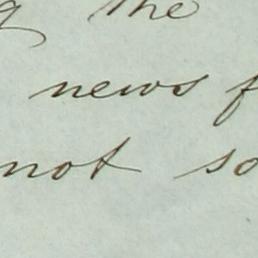 the
news
not so